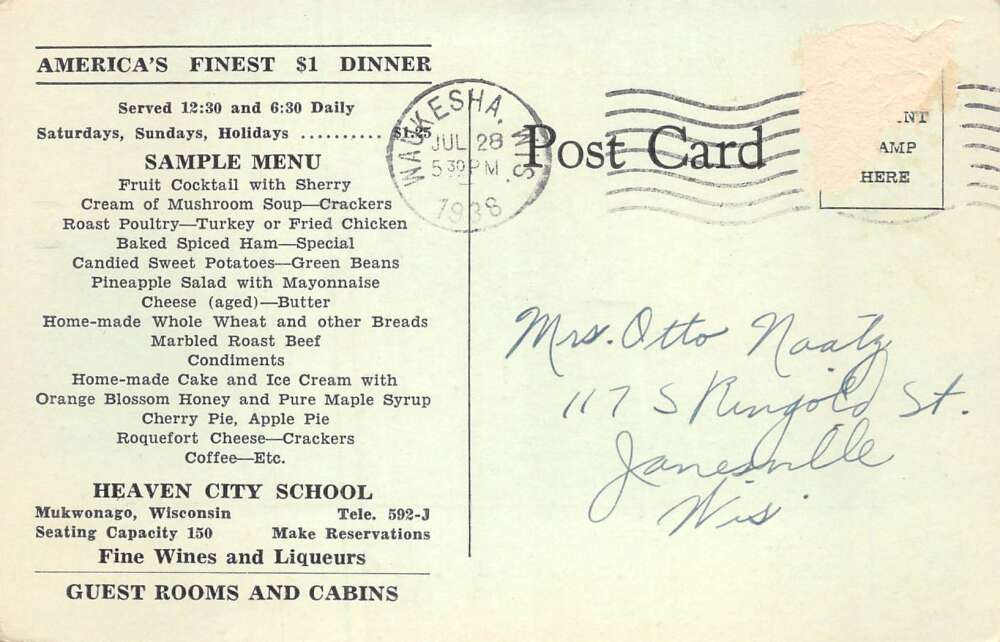 AMERICA'S FINEST $1 DINNER
Served 12:30 and 6:30 Daily
Saturdays, Sundays, Holidays .......... $1.25
SAMPLE MENU
Fruit Cocktail with Sherry
Cream of Mushroom Soup—Crackers
Roast Poultry—Turkey or Fried Chicken
Baked Spiced Ham—Special
Candied Sweet Potatoes—Green Beans
Pineapple Salad with Mayonnaise
Cheese (aged)—Butter
Home-made Whole Wheat and other Breads
Marbled Roast Beef
Condiments
Home-made Cake and Ice Cream with
Orange Blossom Honey and Pure Maple Syrup
Cherry Pie, Apple Pie
Roquefort Cheese—Crackers
Coffee—Etc.
HEAVEN CITY SCHOOL
Mukwonago, Wisconsin Tele. 592-J
Seating Capacity 150 Make Reservations
Fine Wines and Liqueurs
GUEST ROOMS AND CABINS
WAUKESHA, WIS.
JUL 28
5 30 PM
1938
Post Card
NT
AMP
HERE
Mrs. Otto Naatz
117 S Ringold St.
Janesville
Wis